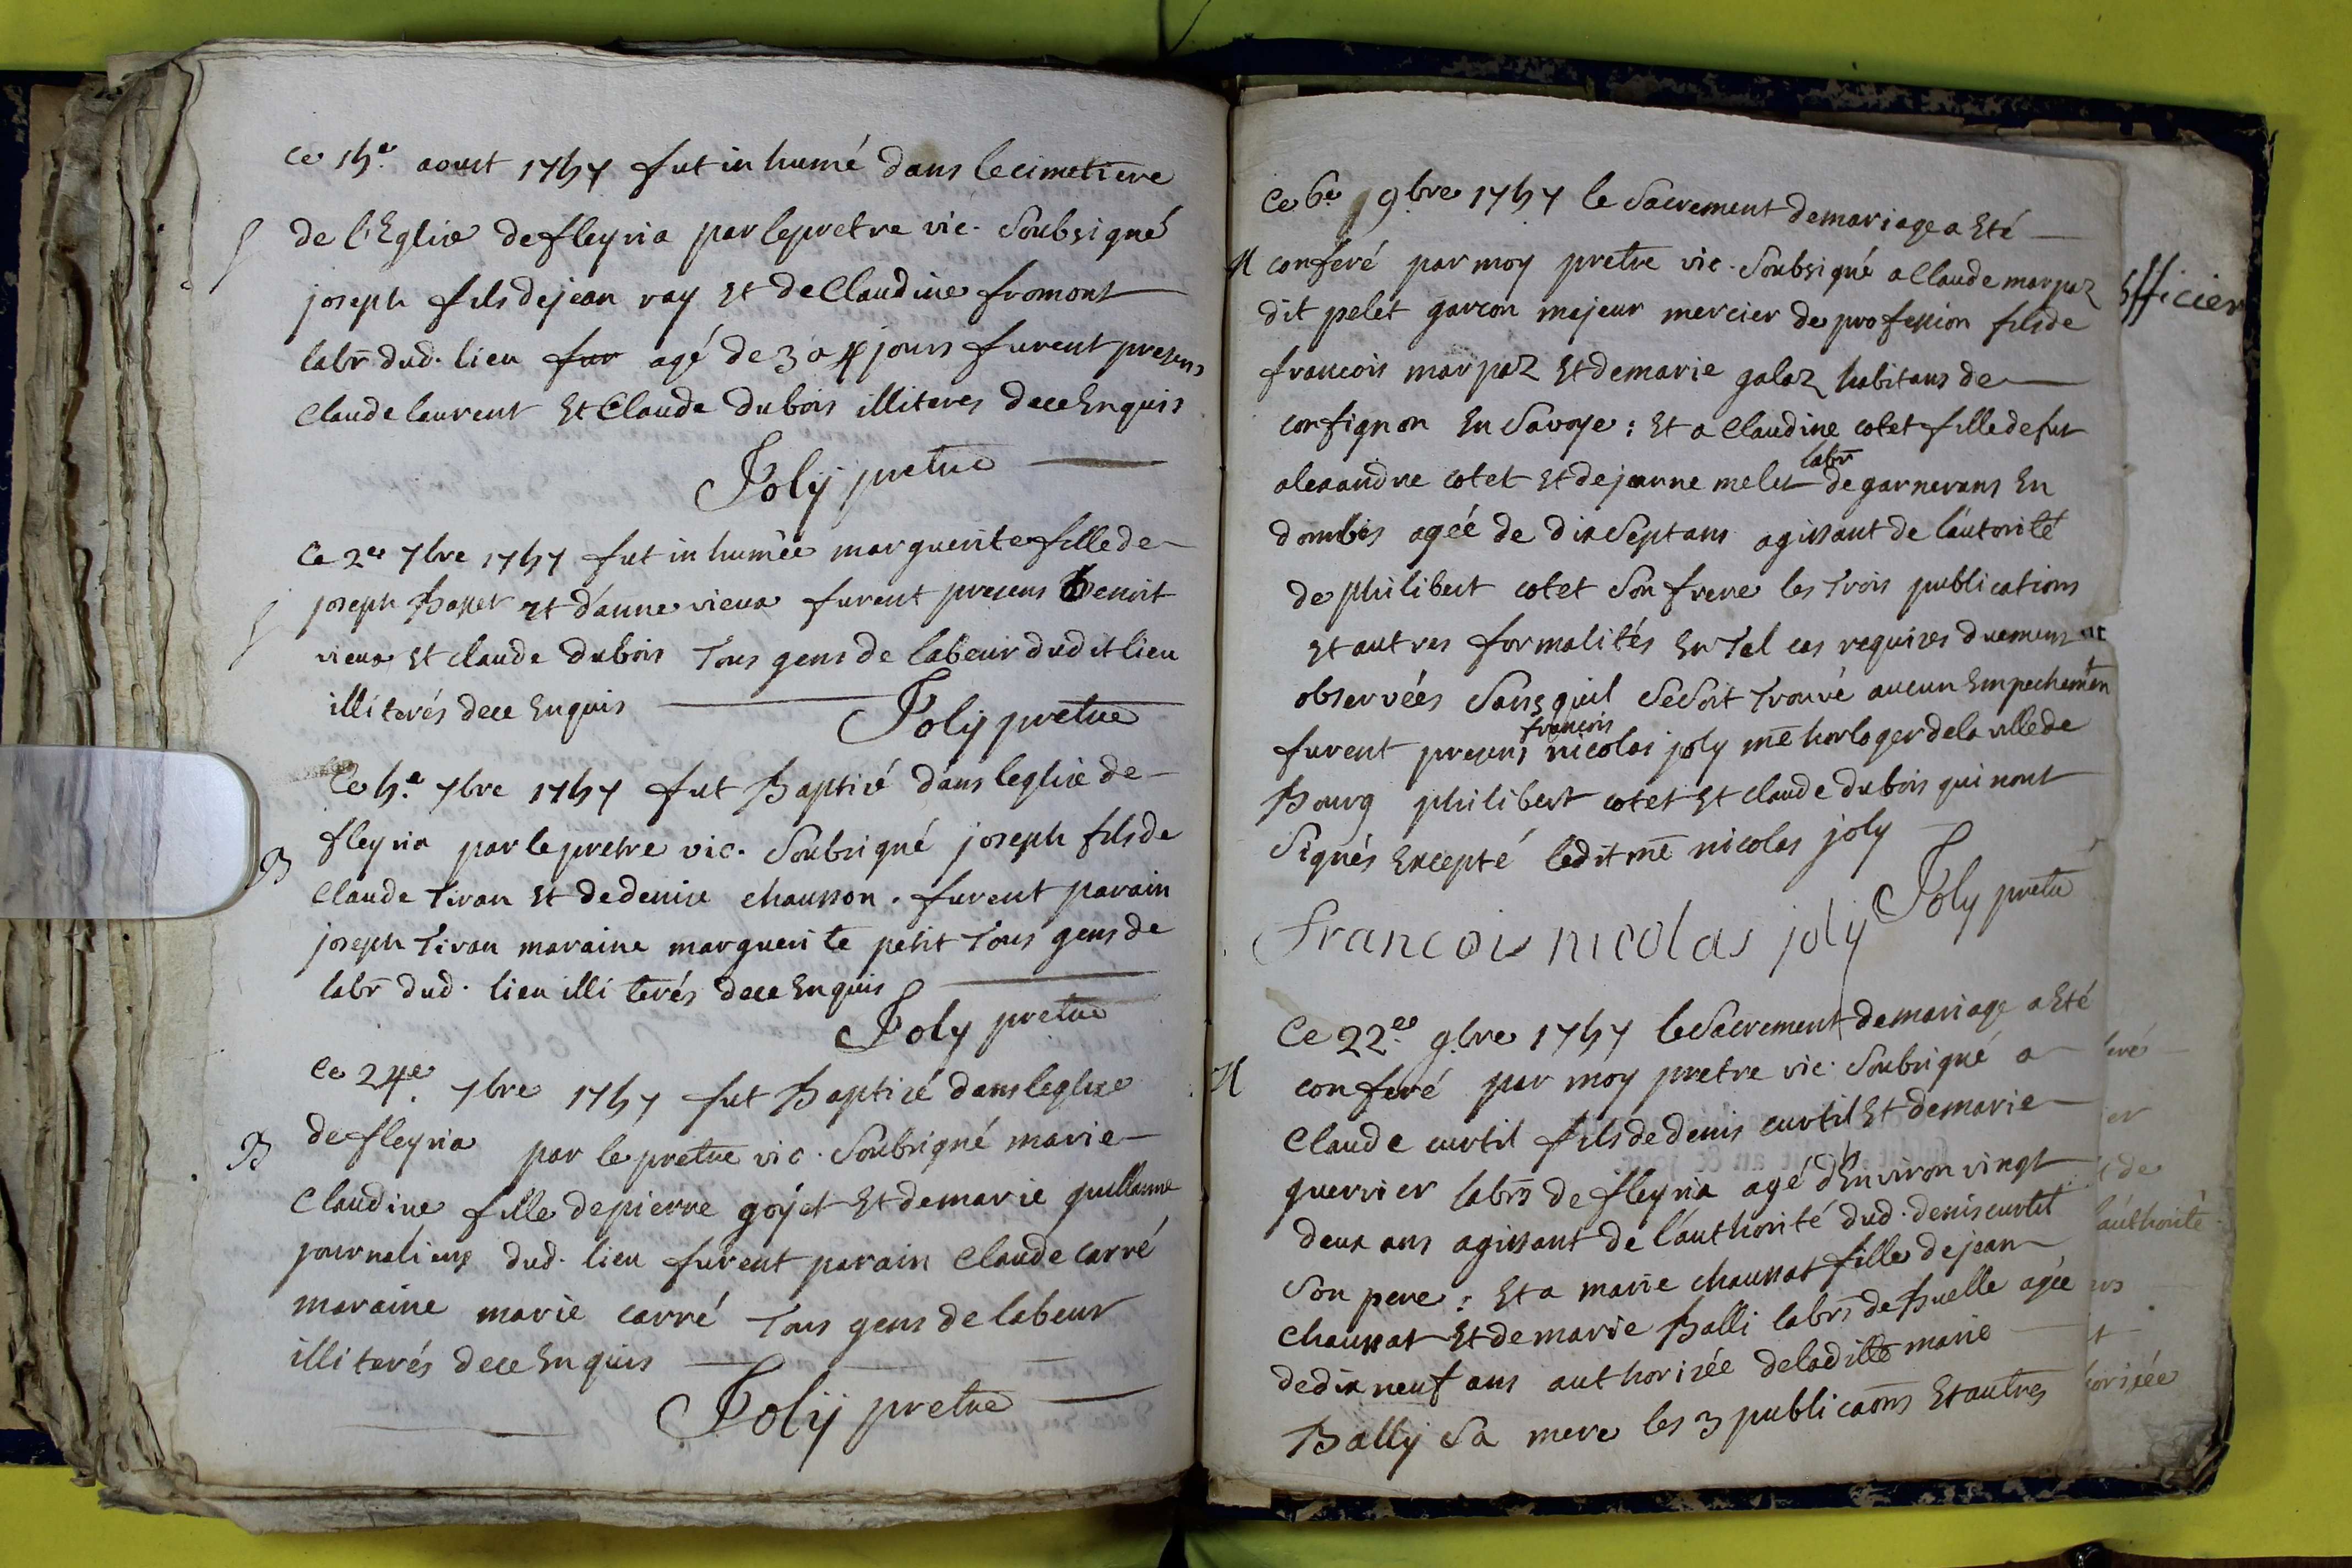 ce 15e. aoust 1757 fut in humé dans le cimetiere
de l'Eglise de fleyria par le pretre vic. Soubsigné
S
joseph fils de jean ray Et de Claudine fromont
labr dud. lieu fur agé de 3 a 4 jours furent presens
Claude laurent Et Claude dubois illiterés de ce Enquis
Joly pretre
Ce 2e 7bre 1757 fut in humée marguerite fille de
joseph Et d'anne vieux furent presens Benoit
S
vieux Et claude dubois Tous gens de labeur dudit lieu
illiterés de ce Enquis
Joly pretre
Ce 5.e 7bre 1757 fut Baptisé dans leglise de
B
fleyria par le pretre vic. Soubsigné joseph fils de
Claude Tiran Et de denise chausson. furent parain
joseph Tiran maraine marguerite petit Tous gens de
labr dud. lieu illi terés de ce Enquis
Joly pretre
Ce 24e. 7bre 1757 fut Baptisé dans leglise
B
de fleyria par le pretre vic. Soubsigné marie
Claudine fille de pierre goyet Et de marie guillanme
journaliers dud. lieu furent parain Claude Carré
maraine marie carré Tous gens de labeur
illi terés de ce Enquis
Joly pretre
Ce 6e 9bre 1757 le Sacrement de mariage a Eté
M
conferé par moy pretre vic. Soubsigné a Claude marpaz
dit pelet garcon majeur mercier de profession fils de
francois marpaz Et de marie galaz habitans de
confignon En Savoye : Et a Claudine cotet fille de fut
labr
alexandre cotet Et de jeanne de garnerans En
dombes agée de dix Sept ans agissant de l'autorité
de philibert cotet Son frere les Trois publications
Et autres formalités En Tel cas requises duement
observées Sans quil Se Soit Trouvé aucun Empechement
francois
furent presens nicolas joly me horloger de la ville de
Bourg philibert cotet Et claude dubois qui nont
Signés Excepté ledit me nicolas joly
Joly pretre
francois nicolas joly
Ce 22e. 9bre 1757 le Sacrement de mariage a Eté
M
conferé par moy pretre vic. Soubsigné a
Claude curtil fils de denis curtil Et de marie
guerrier labrs de fleyria agé d'Environ vingt
deux ans agissant de l'authorité dud. denis curtil
Son pere : Et a marie chaussat fille de jean
chaussat Et de marie Balli labrs de Buelle agée
de dix neuf ans authorisée de laditte marie
Bally Sa mere les 3 publicaons Et autres
officier
feré
er
t de
l'authorité
ers
t
horisée